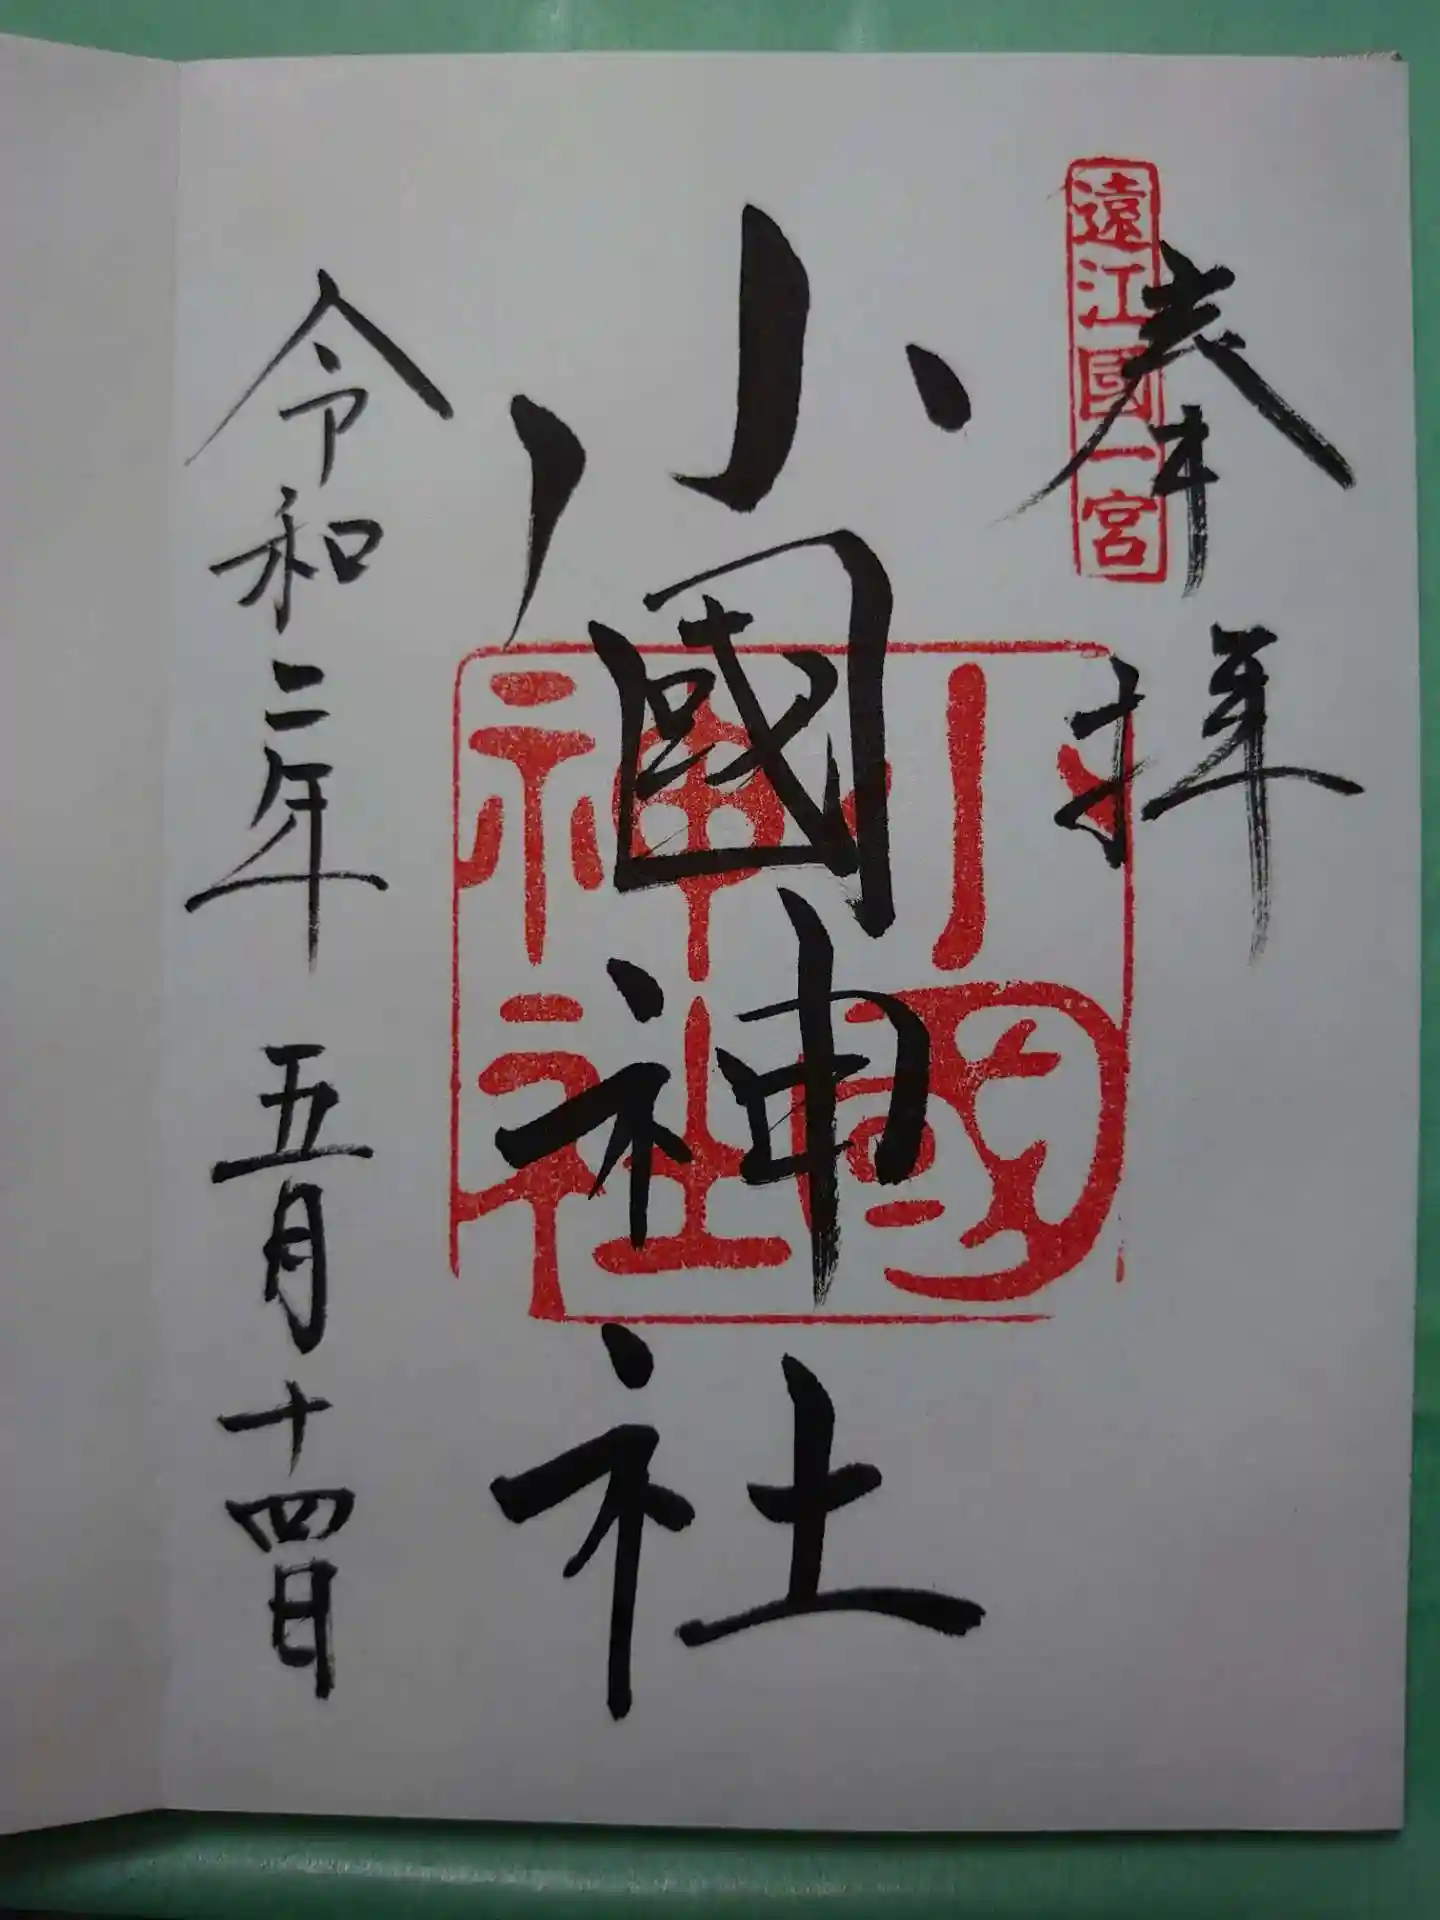 奉拝
遠江國一宮
小國神社
小國神社
令和二年 五月十四日